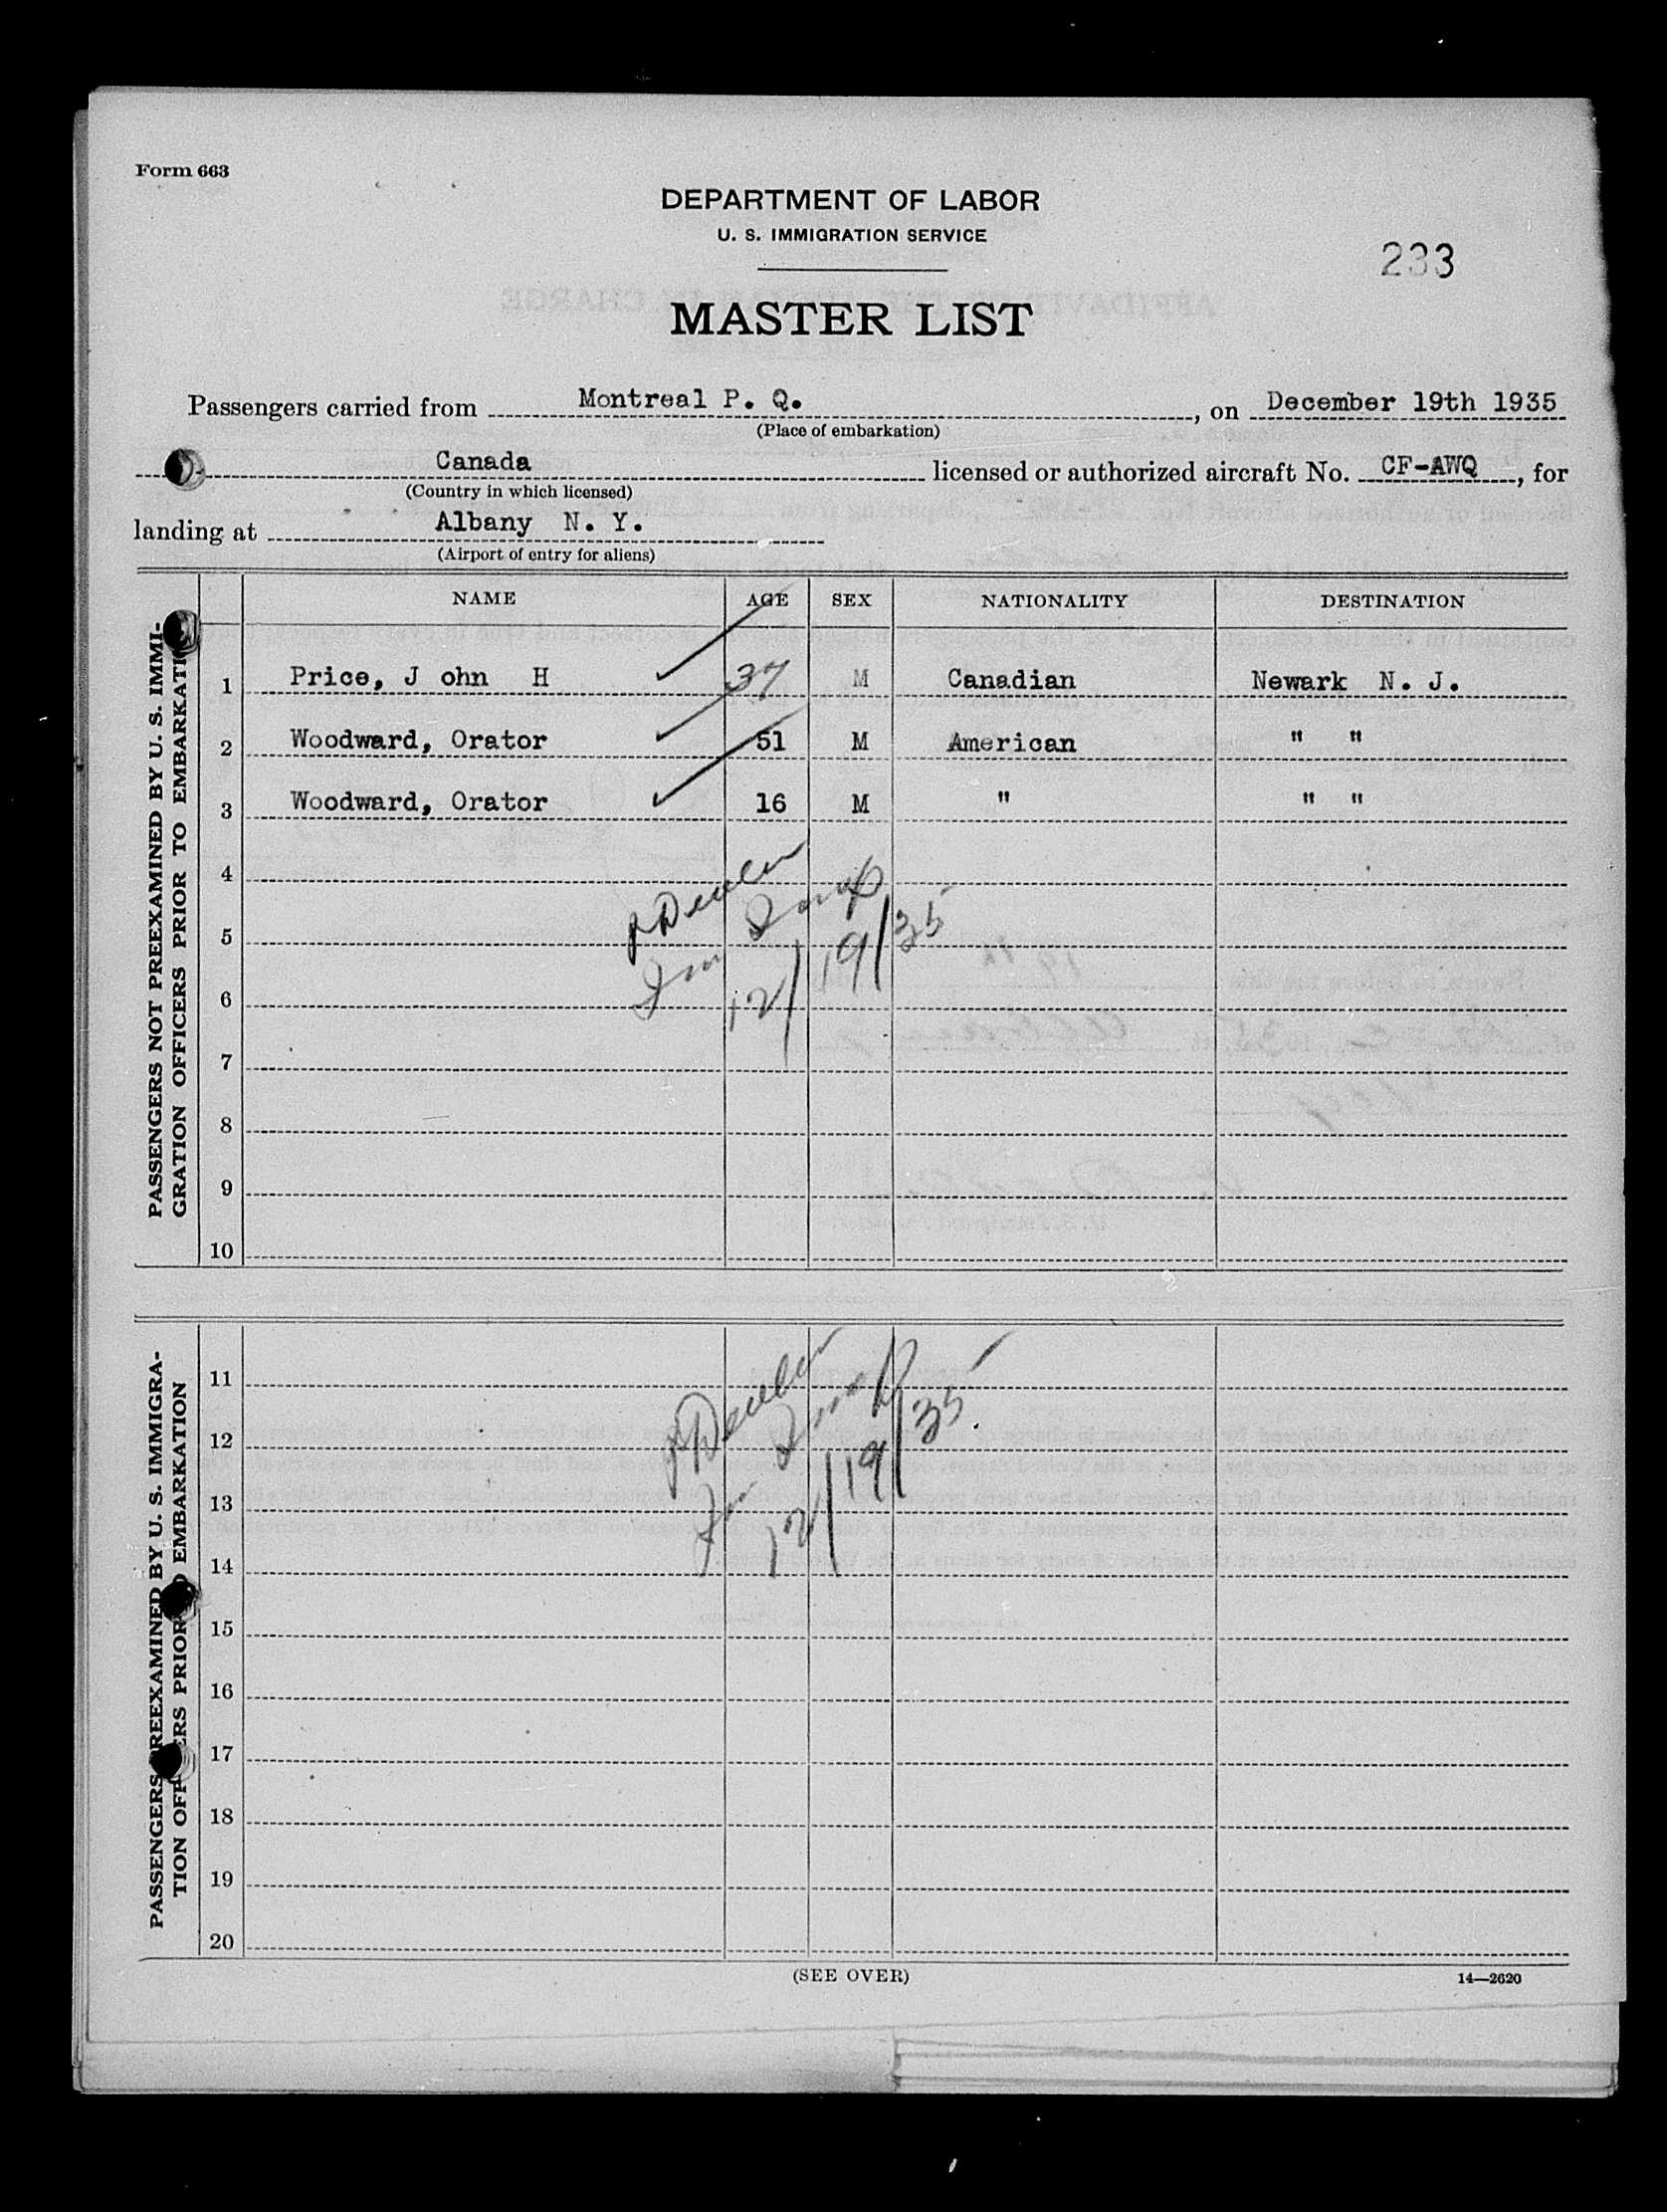 Form 663
DEPARTMENT OF LABOR
U. S. IMMIGRATION SERVICE
233
MASTER LIST
Passengers carried from Montreal P. Q. , on December 19th 1935
(Place of embarkation)
Canada licensed or authorized aircraft No. CF-AWQ , for
(Country in which licensed)
landing at Albany N. Y.
(Airport of entry for aliens)
PASSENGERS NOT PREEXAMINED BY U. S. IMMI-
GRATION OFFICERS PRIOR TO EMBARKATI
NAME AGE SEX NATIONALITY DESTINATION
1 Price, J ohn H 37 M Canadian Newark N. J.
2 Woodward, Orator 51 M American " "
3 Woodward, Orator 16 M " " "
4
5
6
12/19/35
7
8
9
10
PASSENGERS PREEXAMINED BY U. S. IMMIGRA-
TION OFFICERS PRIOR TO EMBARKATION
11
12
13
12/19/35
14
15
16
17
18
19
20
(SEE OVER)
14—2620